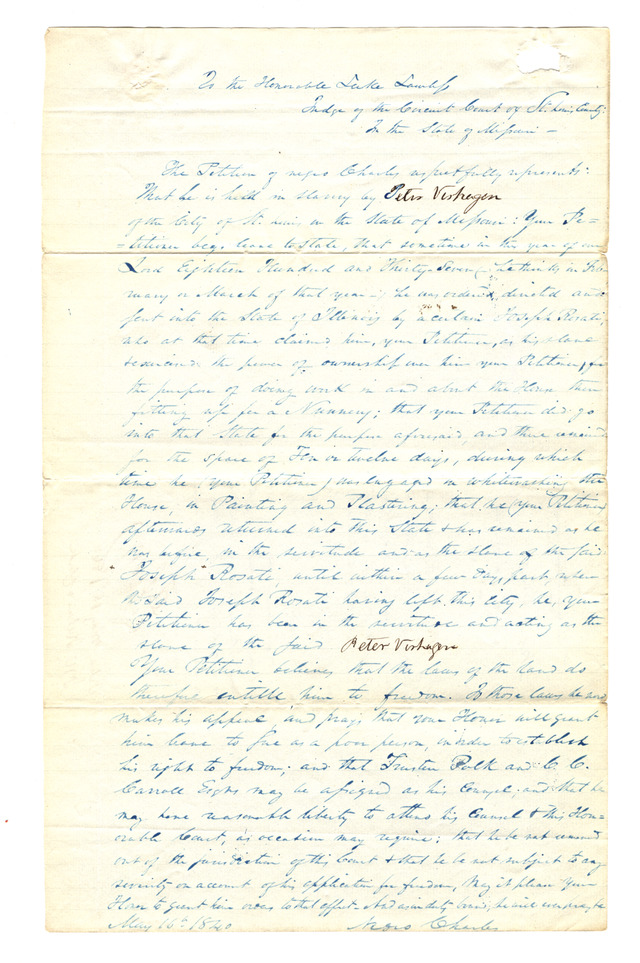 To the Honorable Luke Lawless
Judge of the Circuit Court of St. Louis County
In the State of Missouri –
The Petition of negro Charles respectfully represents:
That he is held in slavery by Peter Verhagen
of the City of St. Louis in the State of Missouri: Your Pe-
-titioner begs leave to state, that sometime in the year of our
Lord Eighteen Hundred and Thirty-Seven (he thinks in Feb-
ruary or March of that year –) he was ordered, directed and
sent into the State of Illinois by a certain Joseph Rosati,
who at that time claimed him, your Petitioner, as his slave
& exercised the power of ownership over him your Petitioner, for
the purpose of doing work in and about the House then
fitting up for a Nunnery; that your Petitioner did go
into that State for the purpose aforesaid, and there remained
for the space of Ten or Twelve days, during which
time he (your Petitioner) was engaged in whitewashing the
House, in Painting and Plastering; that, he (your Petitioner)
afterwards returned into this State & has remained as he
was before, in the servitude and as the slave of the said
"Joseph" Rosati, until within a few days past when
the said Joseph Rosati having left this city, he, your
Petitioner has been in the service and acting as the
slave of the said Peter Verhagen
Your Petitioner believes that the laws of the land do
therefore entitle him to freedom. To those laws he now
makes his appeal, and prays that your Honor will grant
him leave to sue as a poor person, in order to establish
his right to freedom; and that Trusten Polk and C. C.
Carroll Esqrs may be assigned as his Counsel; and that he
may have reasonable liberty to attend his Counsel & this Hon-
orable Court, as occasion may require; that he be not removed
out of the jurisdiction of this Court & that he be not subject to any
severity on account of his application for freedom, May it please Your
Honor to grant him orders to that effect – And as in duty bound, he will ever pray &c
May 16th 1840 Negro Charles